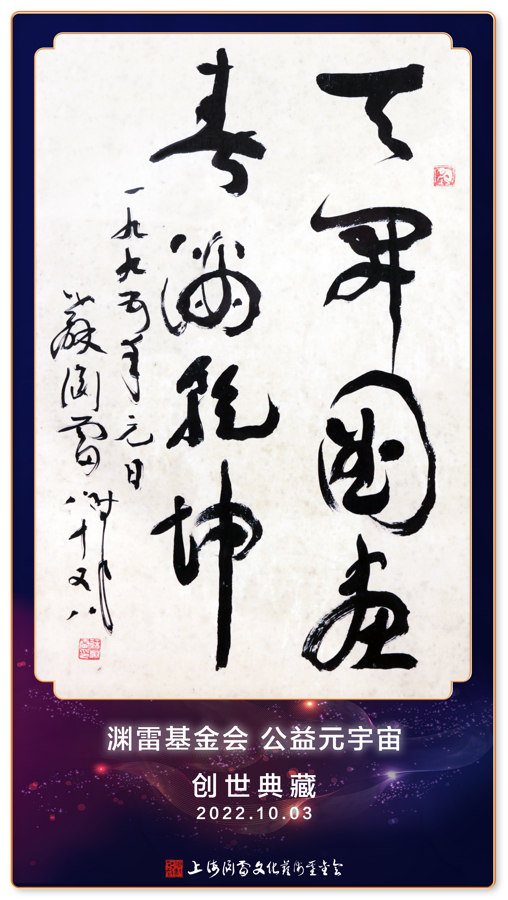 天開圖畫
春滿乾坤
一九九五年元日
蘇渊雷时年八十又八
渊雷基金会 公益元宇宙
创世典藏
2022.10.03
上海渊雷文化艺术基金会